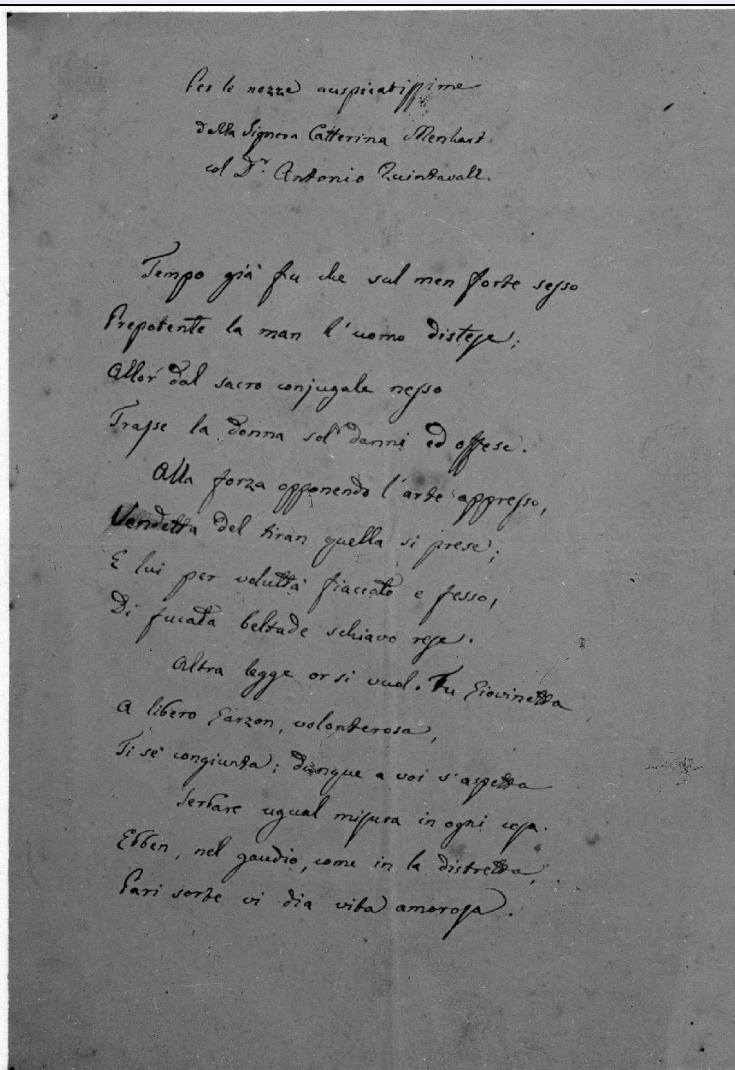 Per le nozze auspicatissime
della Signora Catterina Menhart
col D.r Antonio Quintavalle
Tempo già fu che sul men forte sesso
Prepotente la man l'uomo distese;
Allor dal sacro conjugale nesso
Trasse la donna sol danni ed offese.
Alla forza opponendo l'arte appresso,
Vendetta del tiran quella si prese;
E lui per voluttà fiaccato e fesso,
Di fucata beltade schiavo rese.
Altra legge or si vuol. Tu Giovinetta
A libero Garzon, volonterosa,
Ti se' congiunta; dunque a voi s'aspetta
Serbare ugual misura in ogni cosa.
Ebben, nel gaudio, come in la distretta,
Pari sorte vi dia vita amorosa.